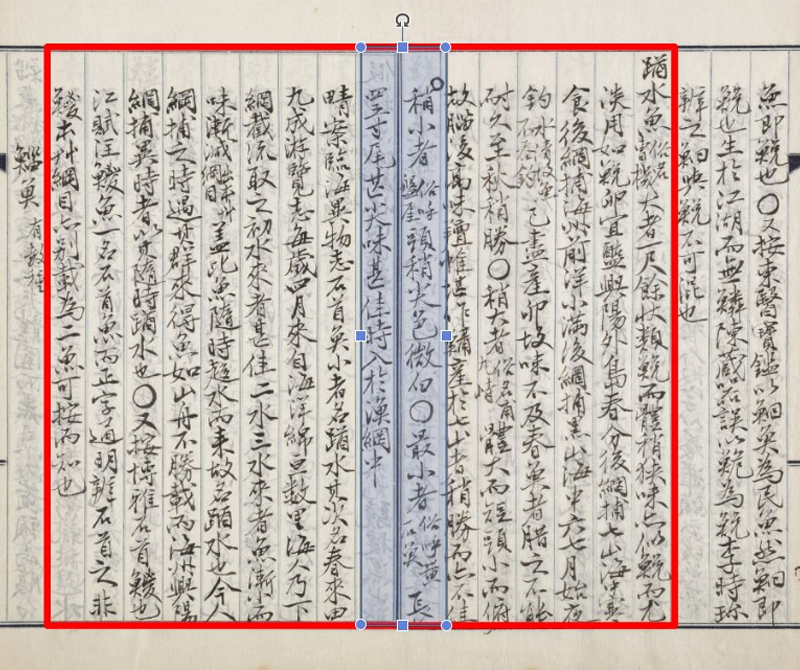 魚即鮸也〇又按東醫寶鑑以鮰魚為民魚然鮰即
鮠也生於江湖而無鱗陳藏器誤以鮸為鮠李時珍
辨之鮰與鮸不可混也
踏水魚 俗名 大者一尺餘狀類鮸而體稍狹味亦似鮸而尤
淡用如鮸卵宜醢興陽外島春分後網捕七山海中寒
食後網捕海州前洋小滿後網捕黑山海中六七月始夜
釣 水清故晝不吞釣 已盡産卵故味不及春魚者腊之不能
耐久至秋稍勝〇稍大者 俗名甫九峙 體大而短頭小而俯
故腦後高味羶惟堪作鱐産於七山者稍勝而亦不佳
稍小者 俗呼盤厓 頭稍尖色微白〇最小者 俗呼黃石魚 長
四五寸尾甚尖味甚佳時入於漁網中
晴案臨海異物志石首魚小者名踏水其次名春來田
九成游覽志每歲四月來自海洋綿亘數里海人乃下
網截流取之初水來者甚佳二水三水來者魚漸小而
味漸減 出本草綱目 盖此魚隨時趍水而來故名踏水也今人
網捕之時遇其群來得魚如山舟不勝載而海州興陽
網捕異時者以其隨時踏水也〇又按博雅石首鯼也
江賦注鯼魚一名石首魚而正字通明辨石首之非
鯼本艸綱目亦別載為二魚可按而知也
鯔魚 有數種